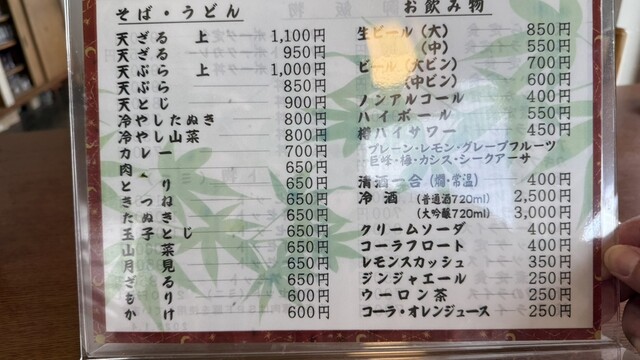 そば・うどん
天ざる 上 1,100円
天ざる 950円
天ぷら 上 1,000円
天ぷら 850円
天とじ 900円
冷やしたぬき 800円
冷やし山菜 800円
カレー 700円
肉 650円
とり 650円
きつね 650円
たぬき 650円
玉子とじ 650円
山菜 650円
月見 650円
ざる 650円
もり 600円
かけ 600円
お飲み物
生ビール(大) 850円
(中) 550円
ビール(大ビン) 700円
(中ビン) 600円
ノンアルコール 400円
ハイボール 550円
樽ハイサワー 450円
プレーン・レモン・グレープフルーツ
巨峰・梅・カシス・シークアーサ
清酒一合(燗・常温) 400円
冷酒 (普通酒720ml) 2,500円
(大吟醸720ml) 3,000円
クリームソーダ 400円
コーラフロート 400円
レモンスカッシュ 350円
ジンジャエール 250円
ウーロン茶 250円
コーラ・オレンジュース 250円